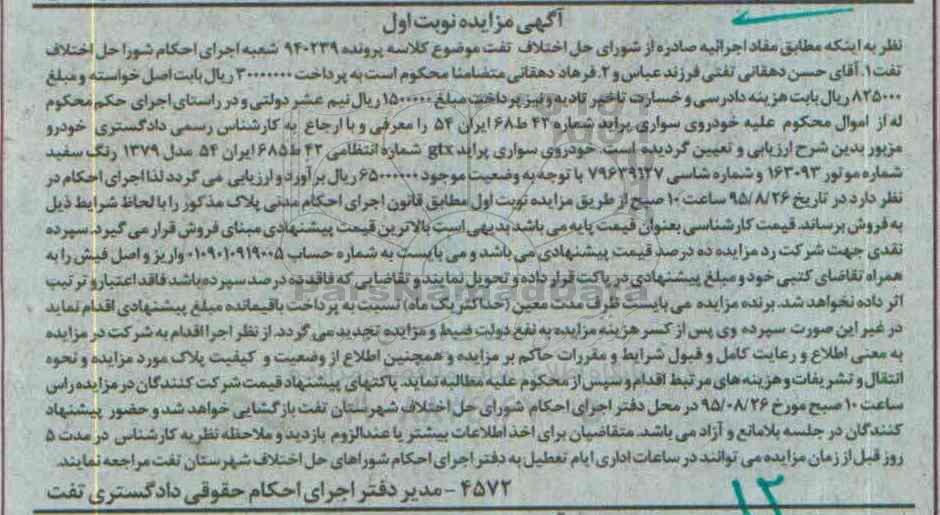 آگهی مزایده نوبت اول
نظر به اینکه مطابق مفاد اجرائیه صادره از شورای حل اختلاف تفت موضوع کلاسه پرونده ۹۴۰۲۳۹ شعبه اجرای احکام شورا حل اختلاف
تفت ۱. آقای حسن دهقانی تفتی فرزند عباس و ۲. فرهاد دهقانی متضامنا محکوم است به پرداخت ۳۰۰۰۰۰۰۰ ریال بابت اصل خواسته و مبلغ
۸۲۵۰۰۰ ریال بابت هزینه دادرسی و خسارت تاخیر تادیه و نیز پرداخت مبلغ ۱۵۰۰۰۰۰ ریال نیم عشر دولتی و در راستای اجرای حکم محکوم
له از اموال محکوم علیه خودروی سواری پراید شماره ۴۲ ط ۶۸ ایران ۵۴ را معرفی و با ارجاع به کارشناس رسمی دادگستری خودرو
مزبور بدین شرح ارزیابی و تعیین گردیده است. خودروی سواری پراید gtx شماره انتظامی ۴۲ ط ۶۸۵ ایران ۵۴ مدل ۱۳۷۹ رنگ سفید
شماره موتور ۱۶۳۰۹۳ و شماره شاسی ۷۹۶۳۹۱۲۷ با توجه به وضعیت موجود ۶۵۰۰۰۰۰۰ ریال برآورد و ارزیابی می گردد لذا اجرای احکام در
نظر دارد در تاریخ ۹۵/۸/۲۶ ساعت ۱۰ صبح از طریق مزایده نوبت اول مطابق قانون اجرای احکام مدنی پلاک مذکور را با لحاظ شرایط ذیل
به فروش برساند. قیمت کارشناسی بعنوان قیمت پایه می باشد بدیهی است بالاترین قیمت پیشنهادی مبنای فروش قرار می گیرد. سپرده
نقدی جهت شرکت رد مزایده ده درصد قیمت پیشنهادی می باشد و می بایست به شماره حساب ۰۱۰۹۰۱۰۹۱۹۰۰۵ واریز و اصل فیش را به
همراه تقاضای کتبی خود و مبلغ پیشنهادی در پاکت قرار داده و تحویل نمایند و تقاضایی که فاقد ده درصد سپرده باشد فاقد اعتبار و ترتیب
اثر داده نخواهد شد. برنده مزایده می بایست ظرف مدت معین (حداکثر یک ماه) نسبت به پرداخت باقیمانده مبلغ پیشنهادی اقدام نماید
در غیر این صورت سپرده وی پس از کسر هزینه مزایده به نفع دولت ضبط و مزایده تجدید می گردد. از نظر اجرا اقدام به شرکت در مزایده
به معنی اطلاع و رعایت کامل و قبول شرایط و مقررات حاکم بر مزایده و همچنین اطلاع از وضعیت و کیفیت پلاک مورد مزایده و نحوه
انتقال و تشریفات و هزینه های مرتبط اقدام و سپس از محکوم علیه مطالبه نماید. پاکتهای پیشنهاد قیمت شرکت کنندگان در مزایده راس
ساعت ۱۰ صبح مورخ ۹۵/۰۸/۲۶ در محل دفتر اجرای احکام شورای حل اختلاف شهرستان تفت بازگشایی خواهد شد و حضور پیشنهاد
کنندگان در جلسه بلامانع و آزاد می باشد. متقاضیان برای اخذ اطلاعات بیشتر یا عندالزوم بازدید و ملاحظه نظریه کارشناس در مدت ۵
روز قبل از زمان مزایده می توانند در ساعات اداری ایام تعطیل به دفتر اجرای احکام شوراهای حل اختلاف شهرستان تفت مراجعه نمایند.
۴۵۷۲ - مدیر دفتر اجرای احکام حقوقی دادگستری تفت
۱۲